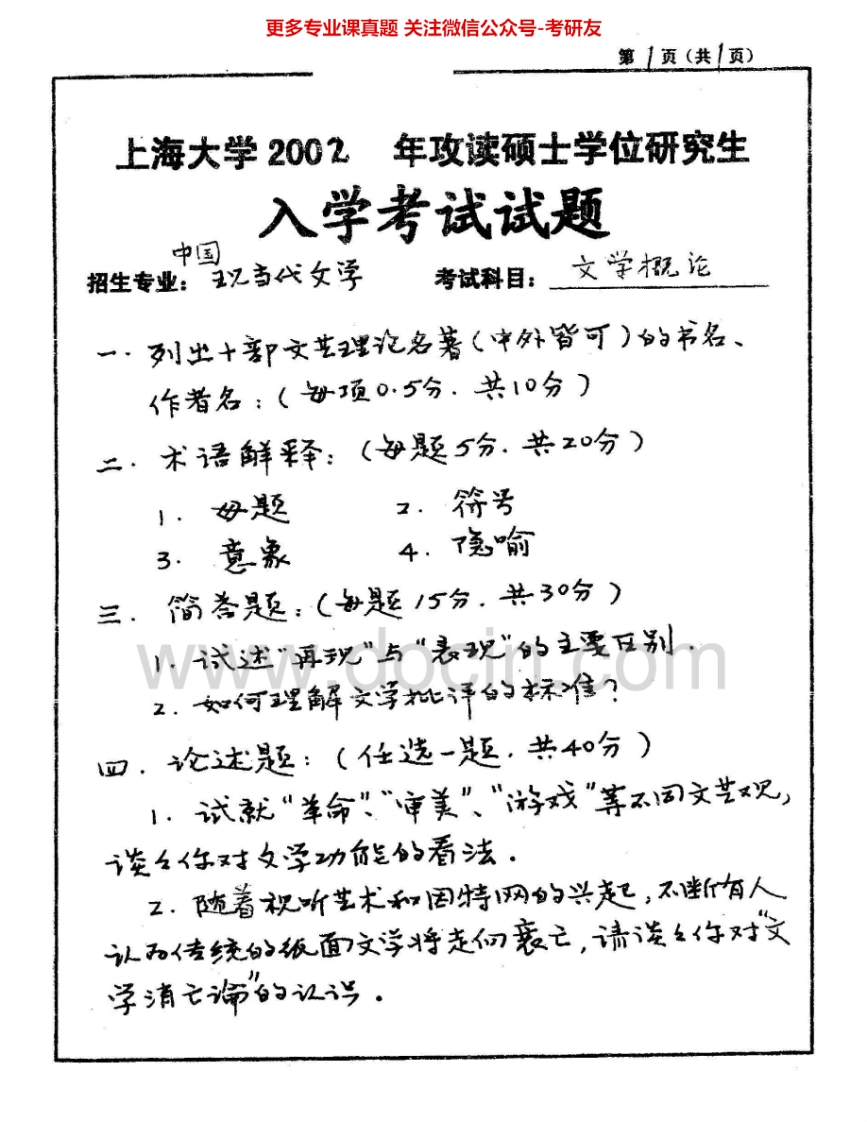 更多专业课真题 关注微信公众号-考研友
第1页(共1页)
上海大学2002 年攻读硕士学位研究生
入学考试试题
招生专业：中国现当代文学 考试科目：文学概论
一．列出十部文艺理论名著(中外皆可)的书名、
作者名：(每项0.5分．共10分)
二．术语解释：(每题5分．共20分)
1．母题 2．符号
3．意象 4．隐喻
三．简答题：(每题15分．共30分)
1．试述“再现”与“表现”的主要区别．
2．如何理解文学批评的标准？
www.docin.com
四．论述题：(任选一题．共40分)
1．试就“革命”、“审美”、“游戏”等不同文艺观，
谈谈你对文学功能的看法．
2．随着视听艺术和因特网的兴起，不断有人
认为传统的纸面文学将走向衰亡，请谈谈你对“文
学消亡论”的认识．